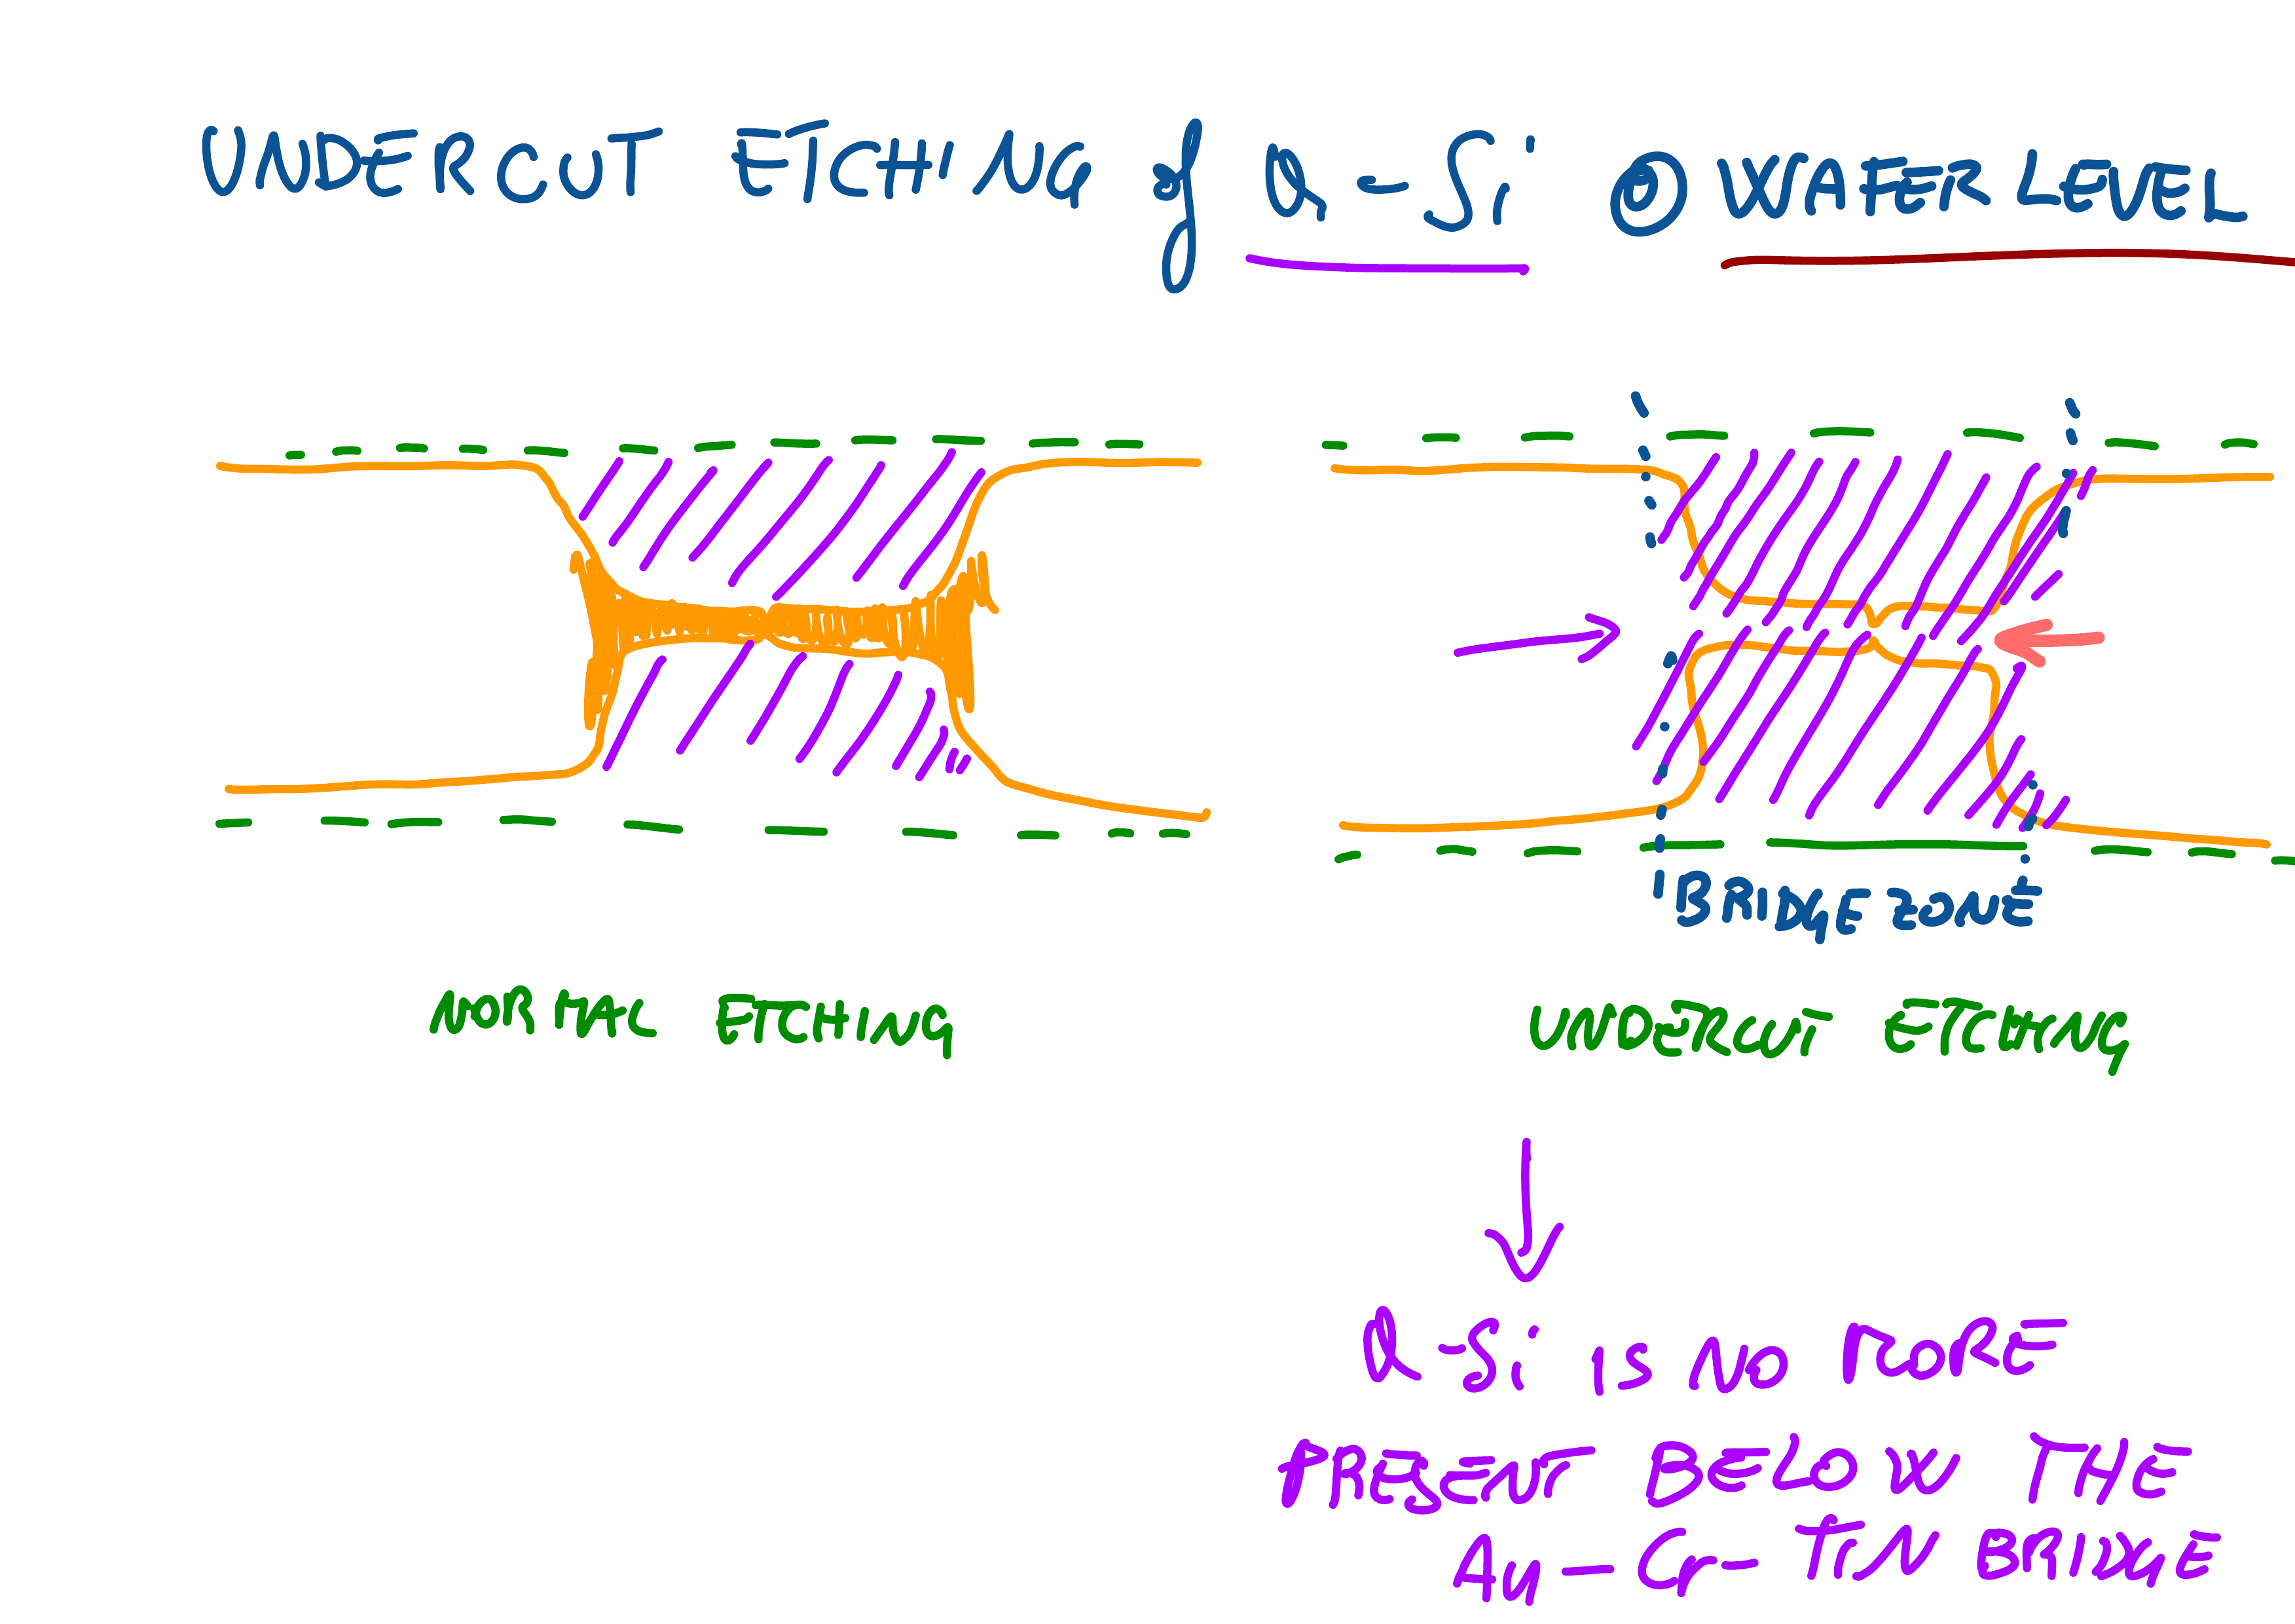 UNDERCUT ETCHING of Q-Si @ WAFER LEVEL
BRIDGE ZONE
NORMAL ETCHING
UNDERCUT ETCHING
Q-Si is NO MORE
PRESENT BELOW THE
Au-Cr-TiN BRIDGE